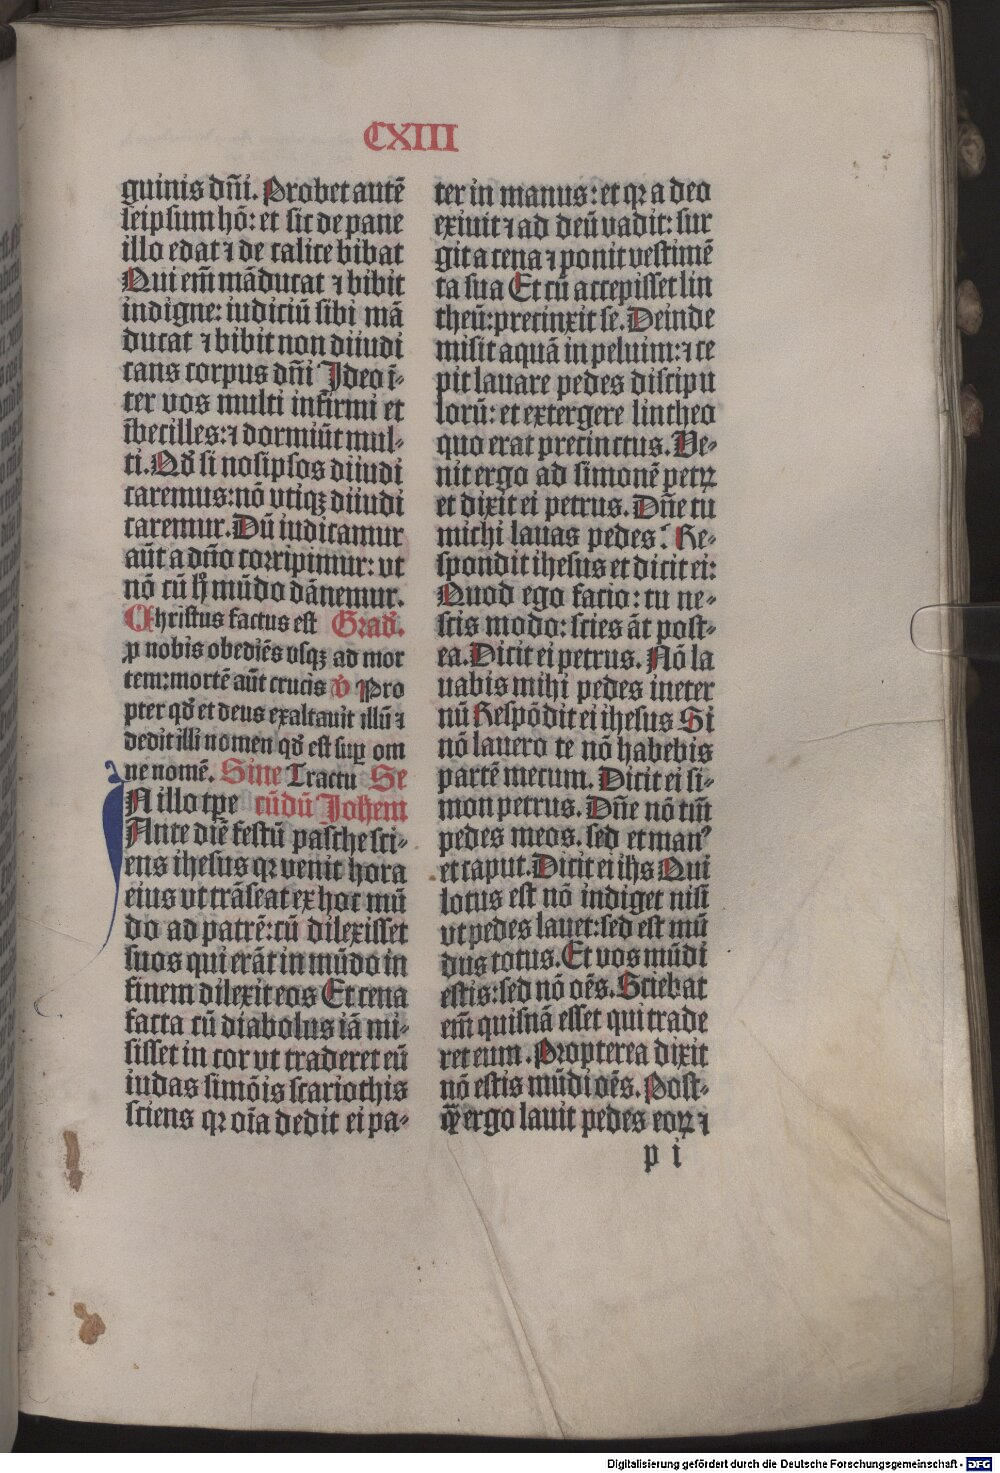 CXIII
guinis dñi. Probet autē
seipsum hō: et sic de pane
illo edat ⁊ de calice bibat
Qui em̄ māducat ⁊ bibit
indigne: iudiciū sibi mā
ducat ⁊ bibit non diiudi
cans corpus dñi Ideo ī-
ter vos multi infirmi et
ībecilles: ⁊ dormiūt mul-
ti. Qd̛ si nosipsos diiudi
caremus: nō vtiqꝫ diiudi
caremur. Dū iudicamur
aūt a dño corripimur: vt
nō cū hͦ mūdo dānemur.
Christus factus est Grad̛.
ꝓ nobis obediēs vsqꝫ ad mor
tem: mortē aūt crucis v̛ Pro
pter qd̛ et deus exaltauit illū ⁊
dedit illi nomen qd̛ est suꝑ om
ne nomē. Sine Tractu Se
IN illo tꝑe cūdū Johem
Ante diē festū pasche sci-
ens ihesus qꝛ venit hora
eius vt trāseat ex hoc mū
do ad patrē: cū dilexisset
suos qui erāt in mūdo in
finem dilexit eos Et cena
facta cū diabolus iā mi-
sisset in cor vt traderet eū
iudas simōis scariothis
sciens qꝛ oīa dedit ei pa-
ter in manus: et qꝛ a deo
exiuit ⁊ ad deū vadit: sur
git a cena ⁊ ponit vestimē
ta sua Et cū accepisset lin
theū: precinxit se. Deinde
misit aquā in peluim: ⁊ ce
pit lauare pedes discipu
lorū: et extergere lintheo
quo erat precinctus. Ve-
nit ergo ad simonē petrꝝ
et dixit ei petrus. Dñe tu
michi lauas pedes? Re-
spondit ihesus et dicit ei:
Quod ego facio: tu ne-
scis modo: scies āt post-
ea. Dicit ei petrus. Nō la
uabis mihi pedes ineter
nū Respōdit ei ihesus Si
nō lauero te nō habebis
partē mecum. Dicit ei si-
mon petrus. Dñe nō tm̄
pedes meos. sed et manꝰ
et caput. Dicit ei ihs Qui
lotus est nō indiget nisi
vt pedes lauet: sed est mū
dus totus. Et vos mūdi
estis: sed nō oēs. Sciebat
em̄ quisnā esset qui trade
ret eum. Propterea dixit
nō estis mūdi oēs. Post-
q̄ ergo lauit pedes eoꝝ ⁊
p i
Digitalisierung gefördert durch die Deutsche Forschungsgemeinschaft - DFG